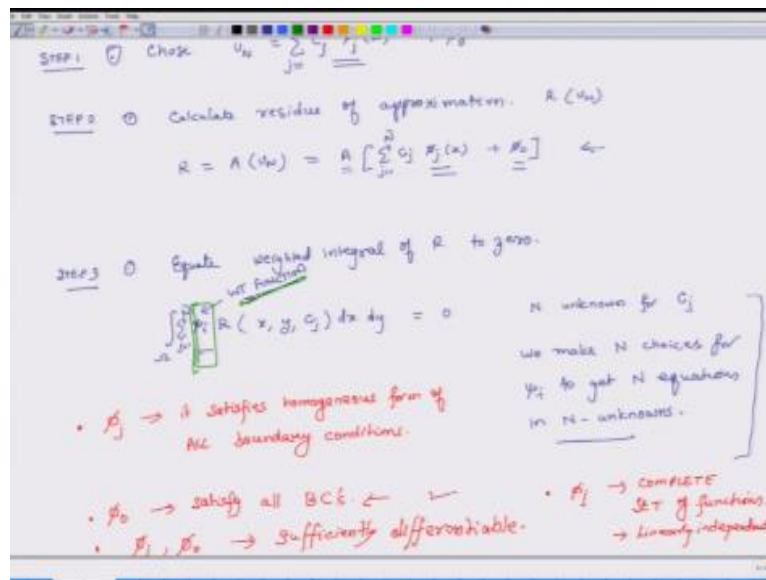 STEP 1 ① Chose u_N = Σ_{j=} C_j φ_j ( ) φ_0
STEP 2 ① Calculate residue of approximation. R (u_N)
R = A (u_N) = A [Σ_{j=}^N C_j φ_j (x) + φ_0] ←
STEP 3 ① Equate weighted integral of R to zero.
WT FUNCTION
∫_Ω ψ_i R ( x, y, C_j ) dx dy = 0
N unknown for C_j
We make N choices for
ψ_i to get N equations
in N-unknowns.
• φ_j → it satisfies homogeneous form of
ALL boundary conditions.
• φ_0 → satisfy all BC's. ←
• φ_j, φ_0 → Sufficiently differentiable.
• φ_j → COMPLETE
SET of functions.
→ Linearly independent